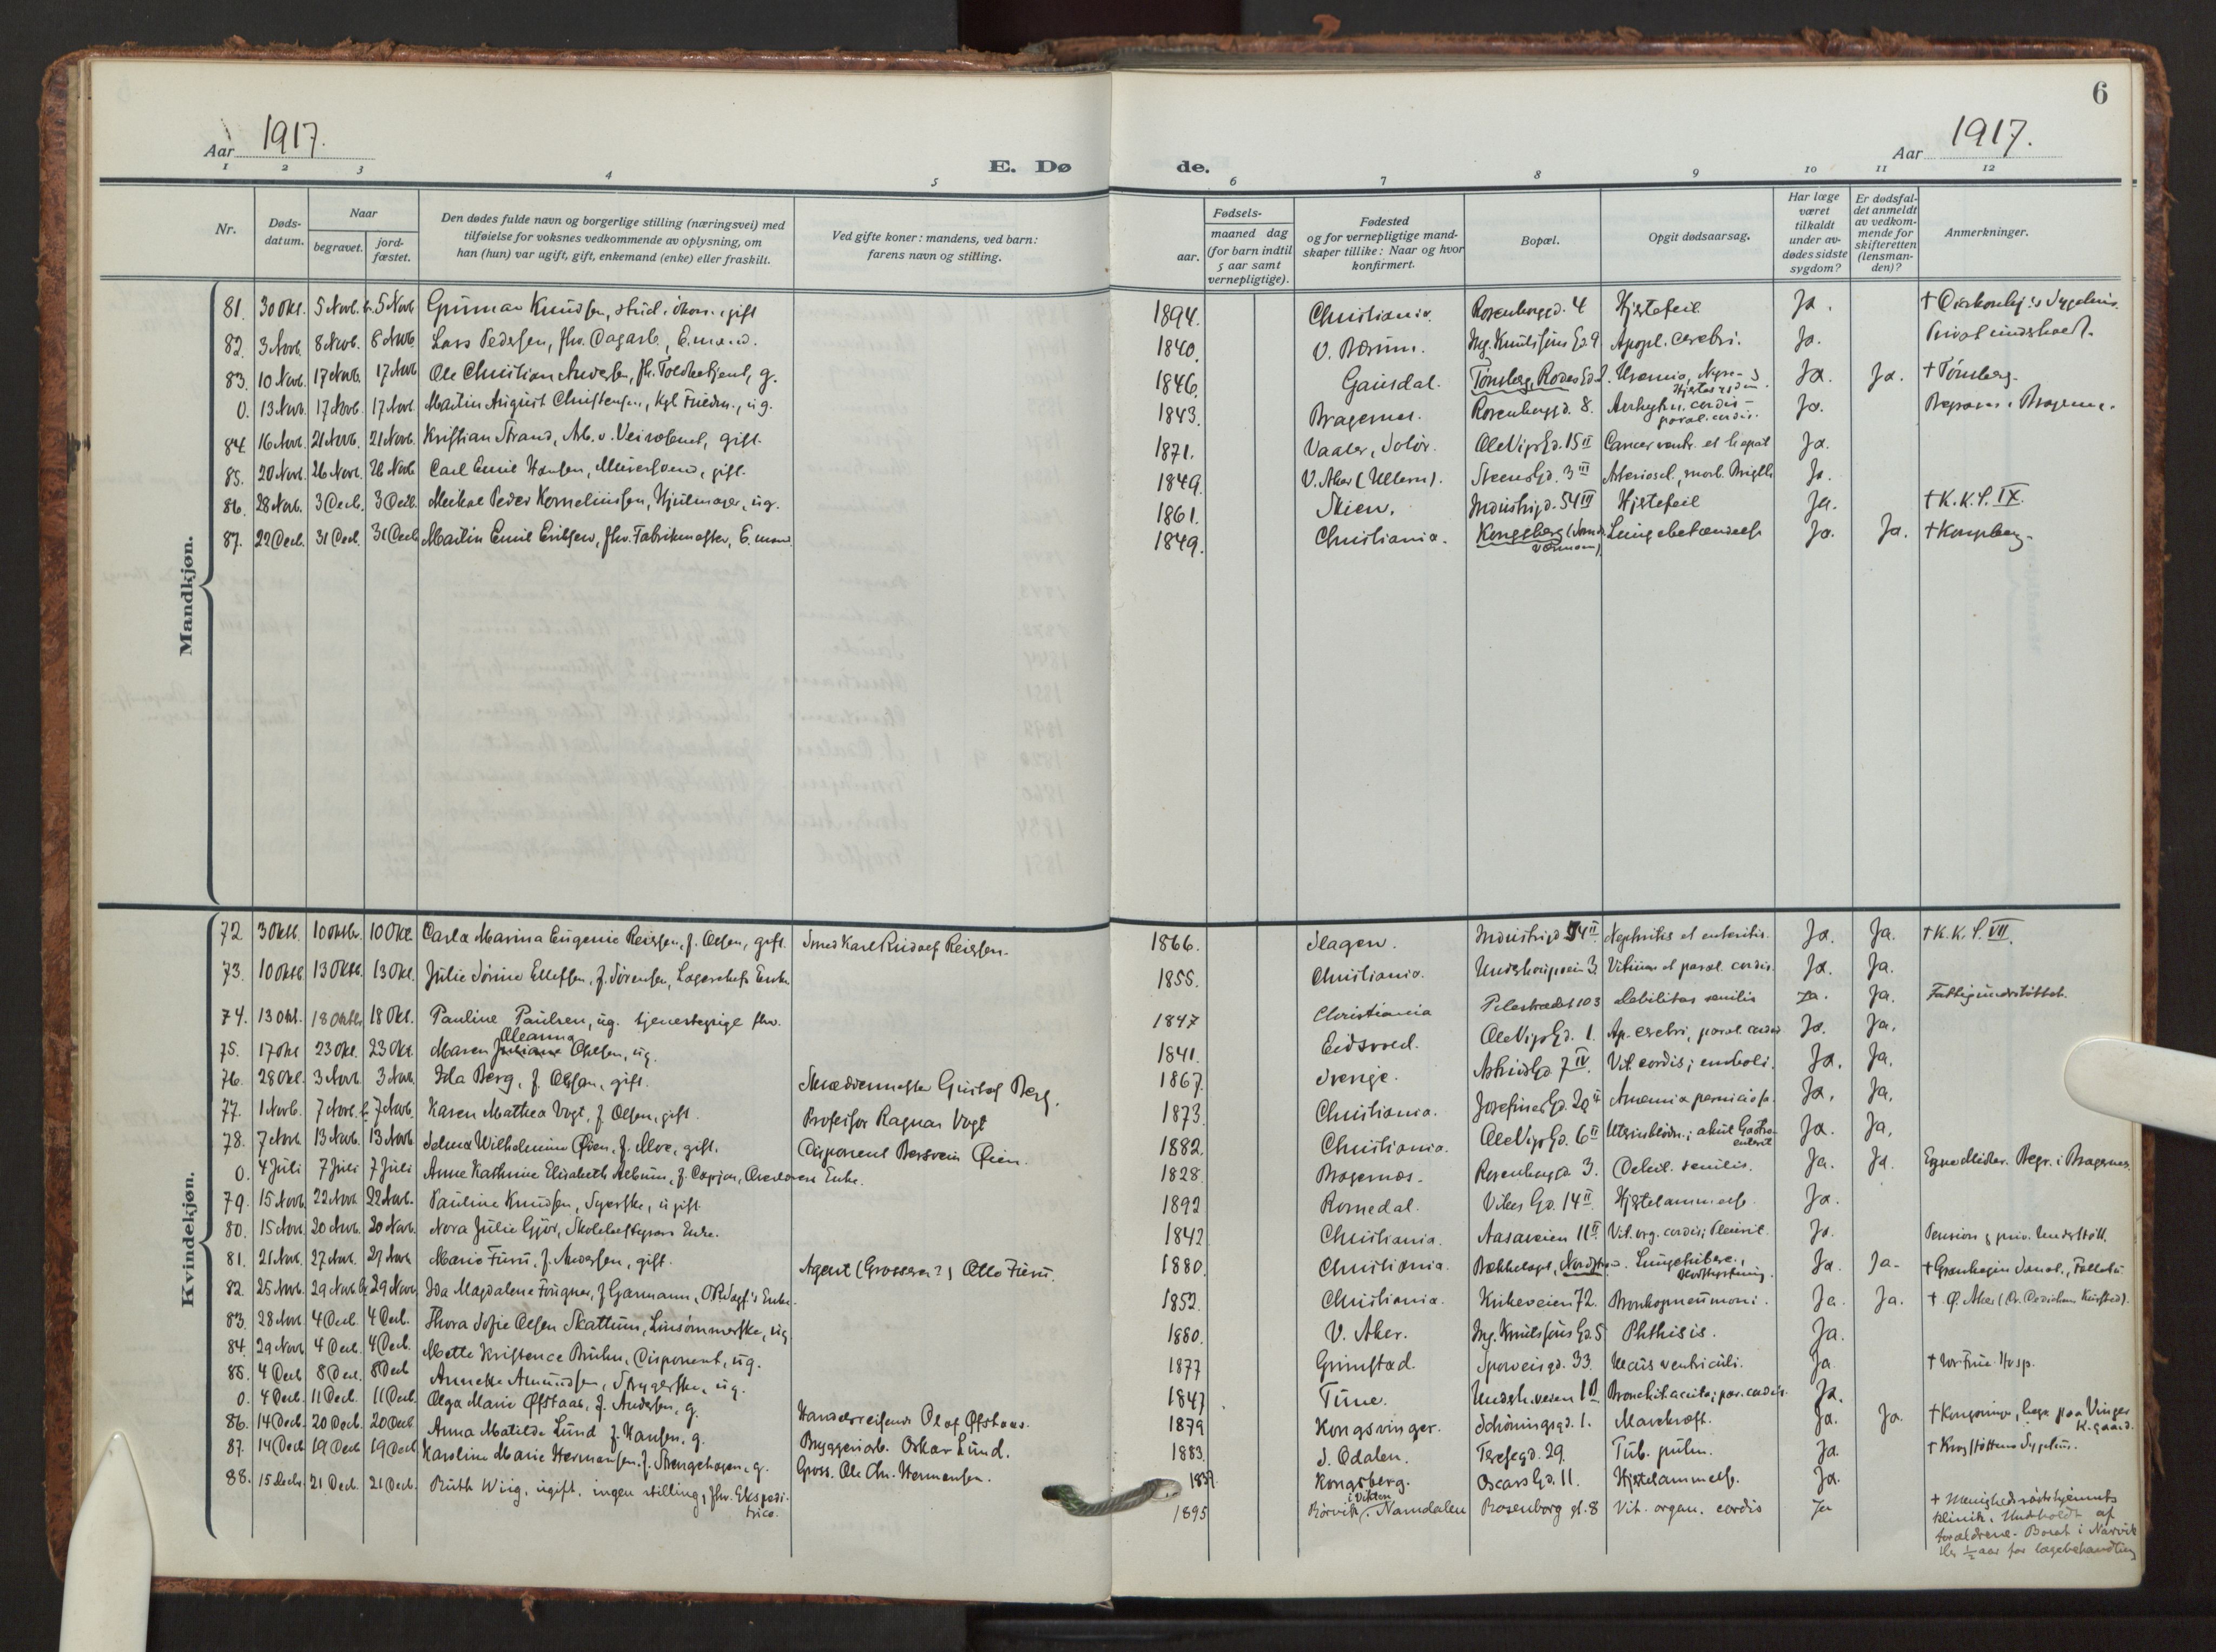 6
Aar 1917.
E. Dø
de.
Aar 1917.
1 2 3 4 5 6 7 8 9 10 11 12
Nr.
Døds-
datum.
Naar
begravet.
jord-
fæstet.
Den dødes fulde navn og borgerlige stilling (næringsvei) med
tilføielse for voksnes vedkommende av oplysning, om
han (hun) var ugift, gift, enkemand (enke) eller fraskilt.
Ved gifte koner: mandens, ved barn:
farens navn og stilling.
Fødsels-
aar.
maaned dag
(for barn indtil
5 aar samt
vernepligtige).
Fødested
og for vernepligtige mand-
skaper tillike: Naar og hvor
konfirmert.
Bopæl.
Opgit dødsaarsag.
Har læge
været
tilkaldt
under av-
dødes sidste
sygdom?
Er dødsfal-
det anmeldt
av vedkom-
mende for
skifteretten
(lensman-
den)?
Anmerkninger.
Mandkjøn.
81. 30 Okt. 5 Novb. 5 Novb Gunnar Knudsen, stud. økon., gift 1894. Christiania. Rosenborggd. 4 Hjertefeil Ja.
82. 3 Novb. 8 Novb. 8 Novb Lars Pedersen, fhv. Dagarb., E.mand. 1840. V. Bærum. Apopl. cerebri. Ja. Privat underholdt.
83. 10 Novb. 17 Novb. 17 Novb Ole Christian Andersen, fh. Toldbetjent, g. 1846. Gausdal. Tønsberg, Uræmia, Nyre- & Hjertesygdom. Ja. Ja. † Tønsberg.
0. 13 Novb. 17 Novb. 17 Novb. Martin August Christensen, Kgl. Fuldm., ug. 1843. Bragernes. Rosenborggd. 8. cordis - paral. cordis. Ja. Begraves i Bragernes.
84. 16 Novb. 21 Novb. 21 Novb. Kristian Strand, Arb. v. Veivæsenet, gift. 1871. Vaaler, Solør. Ole Vigs Gd. 15 II Cancer ventr. et hepat Ja.
85. 20 Novb. 26 Novb. 26 Novb Carl Emil Hansen, Murersvend, gift. 1849. V. Aker (Ullern). Steens Gd. 3 III Arterioscl., morb. Brigthii Ja.
86. 28 Novb. 3 Decb. 3 Decb. Mikal Peder Korneliussen, Hjulmager, ug. 1861. Skien. Industrigd. 54 III Hjertefeil Ja. † K. K. S. IX.
87. 22 Decb. 31 Decb. 31 Decb Martin Emil Eriksen, fhv. Fabrikmester, E. mand. 1849. Christiania. Kongsberg Lungebetændelse Ja. Ja. † Kongsberg.
Kvindekjøn.
72 3 Oktb. 10 Oktbr. 10 Okt. Carla Marina Eugenie Reiersen, f. Olsen, gift. Smed Karl Rudolf Reiersen. 1866. Slagen. Industrigd 54 II Nephritis et enteritis. Ja. Ja. † K. K. S. VII.
73. 10 Oktb. 13 Oktb. 13 Okt. Julie Sørine Ellefsen, f. Sørensen, Lagerchefs Enke 1855. Christiania. 3. Vitium et paral. cordis. Ja. Ja.
74. 13 Okt. 18 Oktbr 18 Okt. Pauline Paulsen, ug. tjenestepige fhv. 1847 Christiania Pilestrædet 103 Debilitas senilis Ja. Ja. Fattigunderstøttet.
75. 17 Okt 23 Okt. 23 Okt. Maren Oleanna Juliane Olsen, ug. 1841. Eidsvold. Ole Vigs Gd. 1. Ap. cerebri, paral. cordis Ja. Ja.
76. 28 Okt. 3 Novb. 3 Novb. Ida Berg, f. Olsson, gift. Smedemester Gustaf Berg. 1867. Sverige. Astrids Gd. 7 IV. Vit. cordis; emboli. Ja. Ja.
77. 1 Novb. 7 Novb. 7 Novb. Karen Mathea Vogt, f. Olsen, gift. Professor Ragnar Vogt 1873. Christiania. Josefines Gd. 29 II Anæmia perniciosa. Ja. Ja.
78. 7 Novb. 13 Novb. 13 Novb. Selma Wilhelmine Øien, f. Alve, gift. Disponent Bersvein Øien. 1882. Christiania. Ole Vigs Gd. 6 II Uterinblødn.; akut Gastro-enterit Ja. Ja.
0. 4 Juli 7 Juli 7 Juli Anne Kathrine Elisabeth Album, f. Enke. 1828. Bragernæs. Rosenborggd. 3. Debil. senilis. Ja. Ja. Egne Midler. Begr. i Bragernes.
79. 15 Novb. 22 Novb 22 Novb. Pauline Knudsen, Syerske, ugift. 1892 Romedal. Vibes Gd. 14 II. Hjertelammelse Ja.
80. 15 Novb. 20 Novb. 20 Novb. Nora Julie Gjør, Skolebestyrers Enke. 1842 Christiania. Aasaveien 11 II. Vit. org. cordis; Pleurit. Ja. Pension & priv. Understøtt.
81. 21 Novb. 27 Novb. 27 Novb Marie Furu, f. Andersen, gift. Agent (Grosserer?) Otto Furu. 1880. Christiania. Bækkelaget, Nordstr. Lungetuberc., Blodstyrtning. Ja. Ja. † Grønhegin Sanat., Follebu.
82. 25 Novb. 29 Novb. 29 Novb Ida Magdalene Fougner, f. Garmann, Enke. 1852. Christiania. Kirkeveien 72. Bronkopneumoni. Ja. Ja. † Ø. Aker
83. 28 Novb. 4 Decb. 4 Decb. Thora Sofie Olsen Skattum, Linsømmerske, ug 1880. V. Aker. Phthisis. Ja.
84. 29 Novb 4 Decb. 4 Decb. Mette Kristence Bruhn, Disponent, ug. 1877 Grimstad. Sporveisgd. 33. Ulcus ventriculi. Ja † Vor Frue Hosp.
85. 4 Decb 8 Decb. 8 Decb Annette Amundsen, Strygerske, ug. 1847 Tune. Bronchit. acuta; par. cordis. Ja.
0. 4 Decb. 11 Decb. 11 Decb. Olga Marie Øfstaas, f. Andersen, g. Handelsreisende Olaf Øfstaas. 1879 Kongsvinger. Schøningsgd. 1. Mavekræft. Ja. Ja. † Kongsvinger, begr. paa Vinger K.gaard.
86. 14 Decb. 20 Decb. 20 Decb Anna Matilde Lund f. Hansen, g. Bryggeriarb. Oskar Lund. 1883. S. Odalen. Teresegd. 29. Tub. pulm. Ja. † Krogstøttens Sygehus.
87. 14 Decb 19 Decb 19 Decb Karoline Marie Hermansen, f. Strengehagen, g. Gross. Ole Chr. Hermansen. 1837. Kongsberg. Oscars Gd. 11. Hjertelammelse. Ja.
88. 15 Decbr. 21 Decb. 21 Decb. Ruth Wiig, ugift, ingen stilling, fhv. Ekspedi-
trice. 1895 Rørvik i Vikten, Namdalen Rosenborg gt. 8 Vit. organ. cordis Ja † Menighedssøsterhjemmets
klinik. Underholdt af
forældrene. Boet i Narvik
til ½ aar for lægebehandling